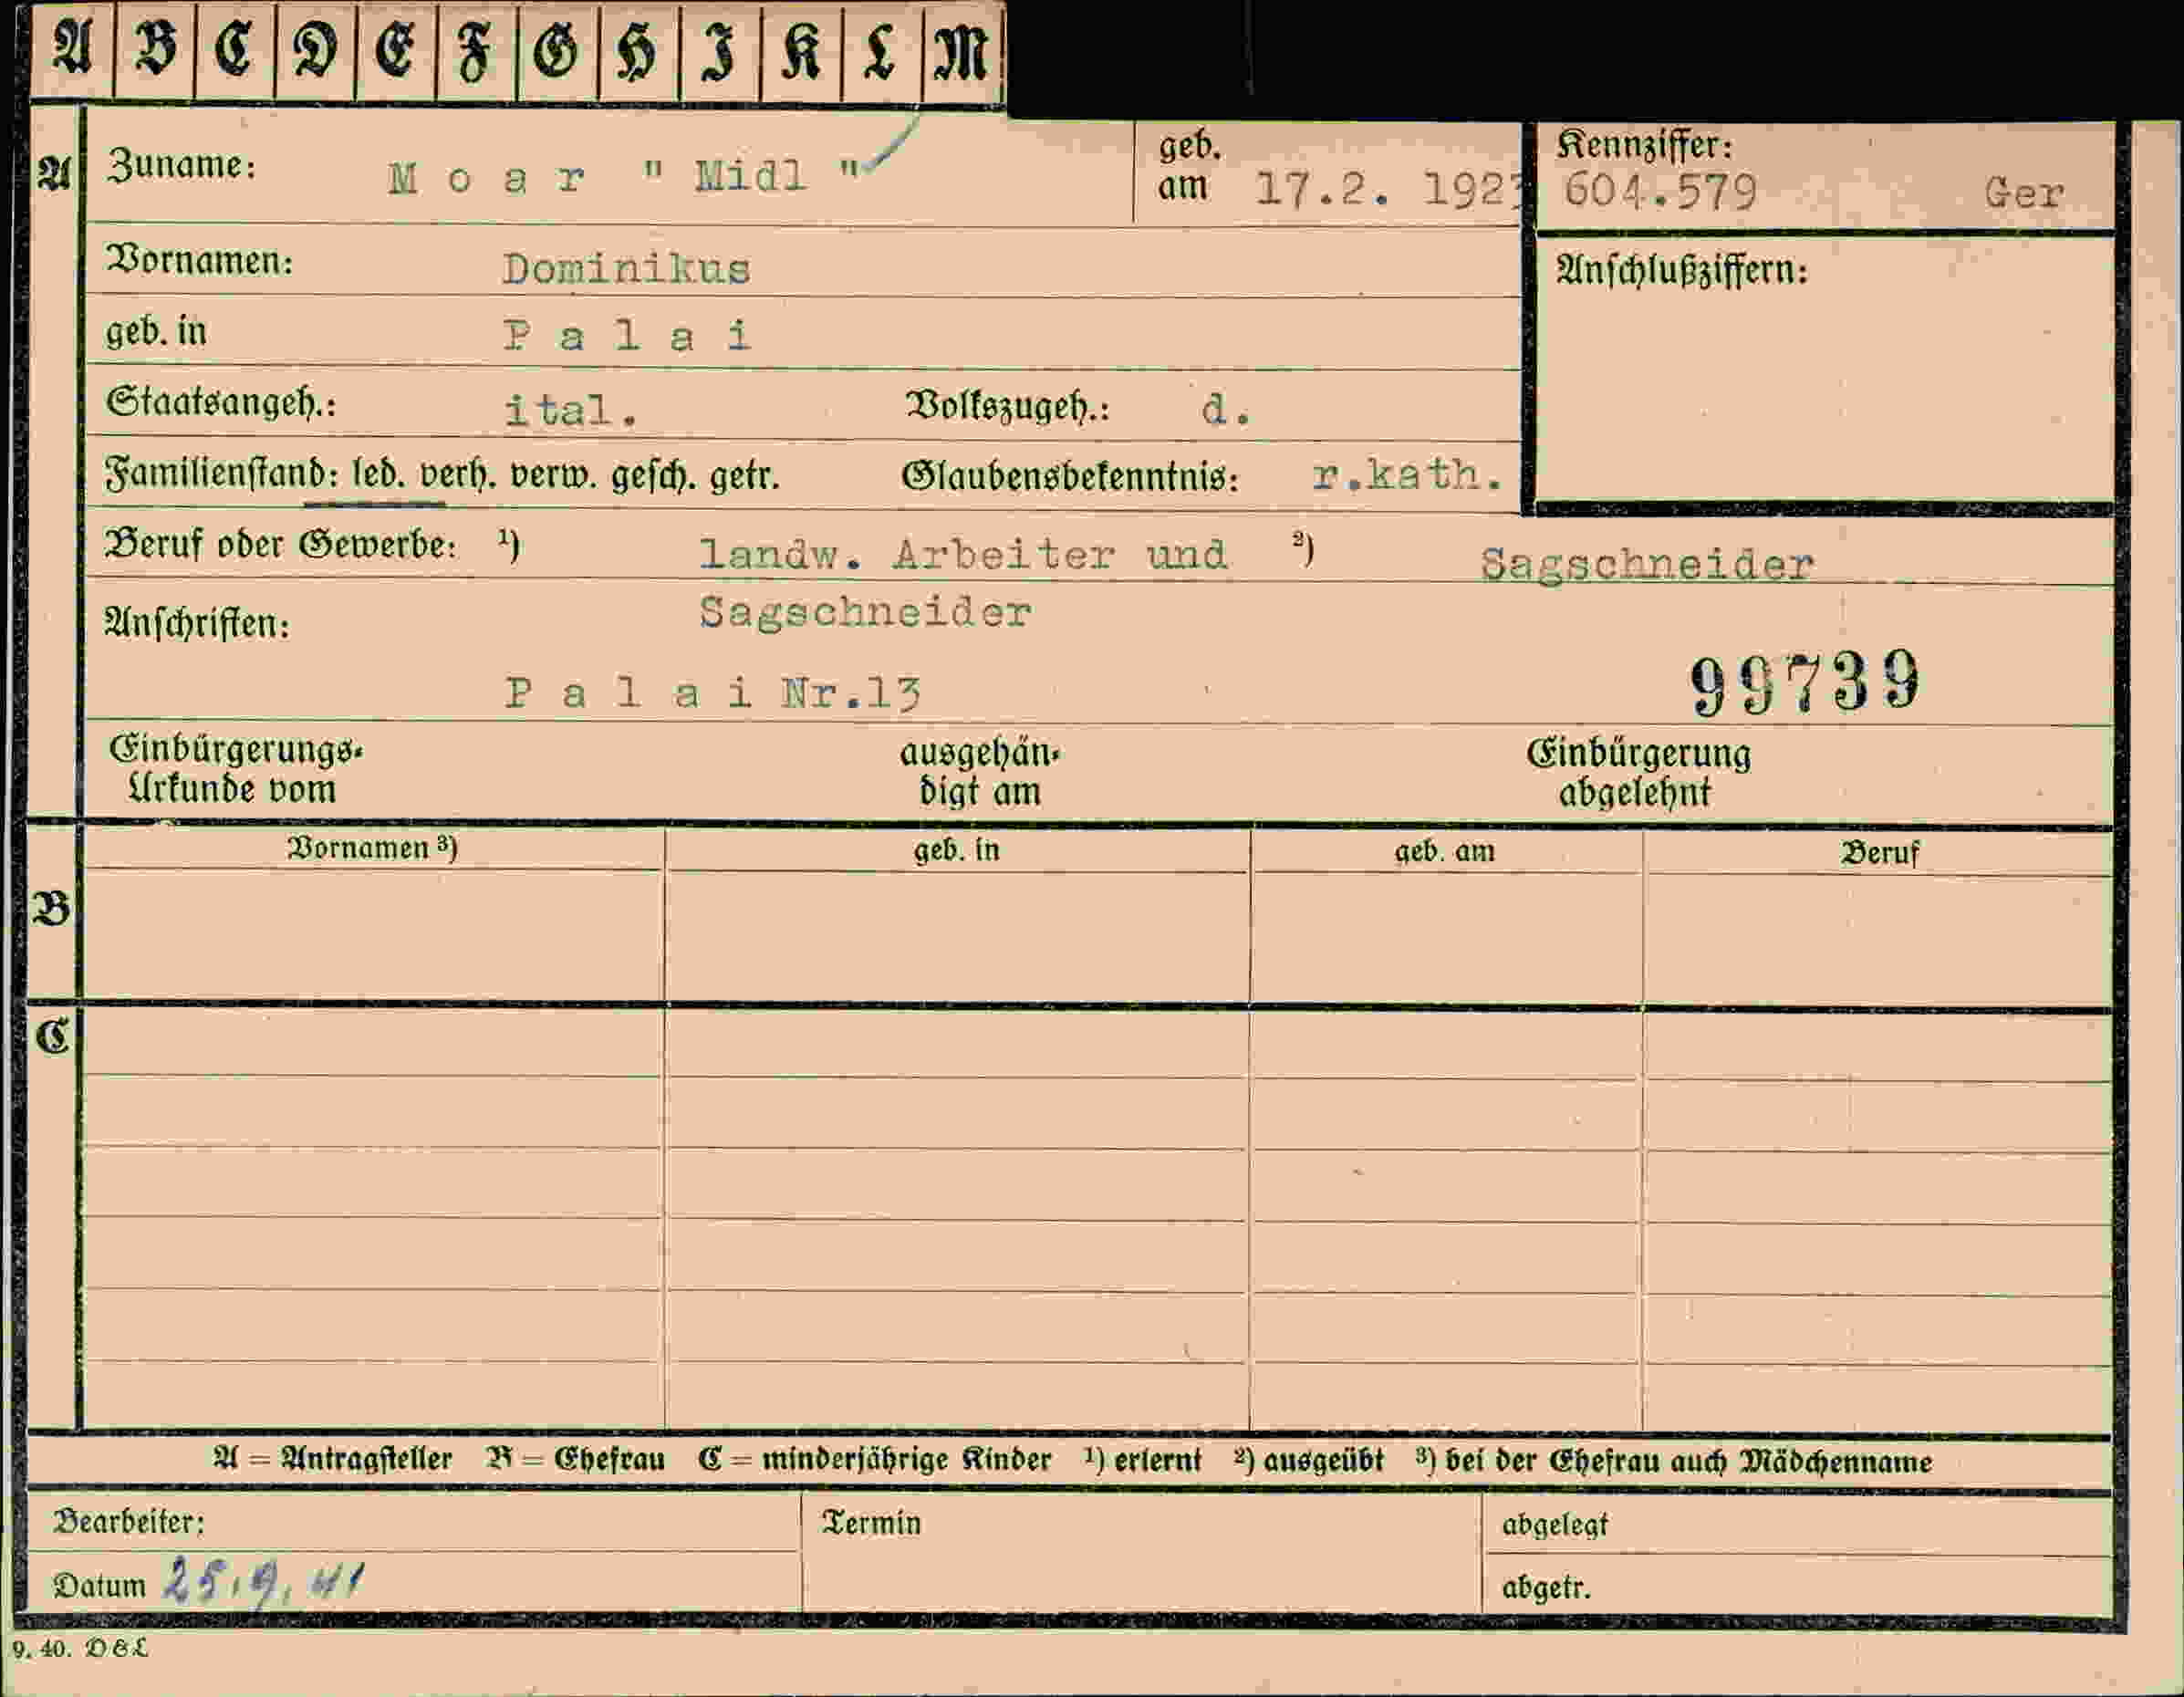 A B C D E F G H I K L M
A Zuname: M o a r " Midl " geb. am 17.2. 1923 Kennziffer: 604.579 Ger
Vornamen: Dominikus Anschlußziffern:
geb. in P a l a i
Staatsangeh.: ital. Volkszugeh.: d.
Familienstand: led. verh. verw. gesch. getr. Glaubensbekenntnis: r.kath.
Beruf oder Gewerbe: ¹) landw. Arbeiter und ²) Sagschneider
Sagschneider
Anschriften:
P a l a i Nr.13 99739
Einbürgerungs-Urkunde vom ausgehän-digt am Einbürgerung abgelehnt
Vornamen ³) geb. in geb. am Beruf
B
C
A = Antragsteller B = Ehefrau C = minderjährige Kinder ¹) erlernt ²) ausgeübt ³) bei der Ehefrau auch Mädchenname
Bearbeiter: Termin abgelegt
Datum 25.9.41 abgetr.
9. 40. D&L